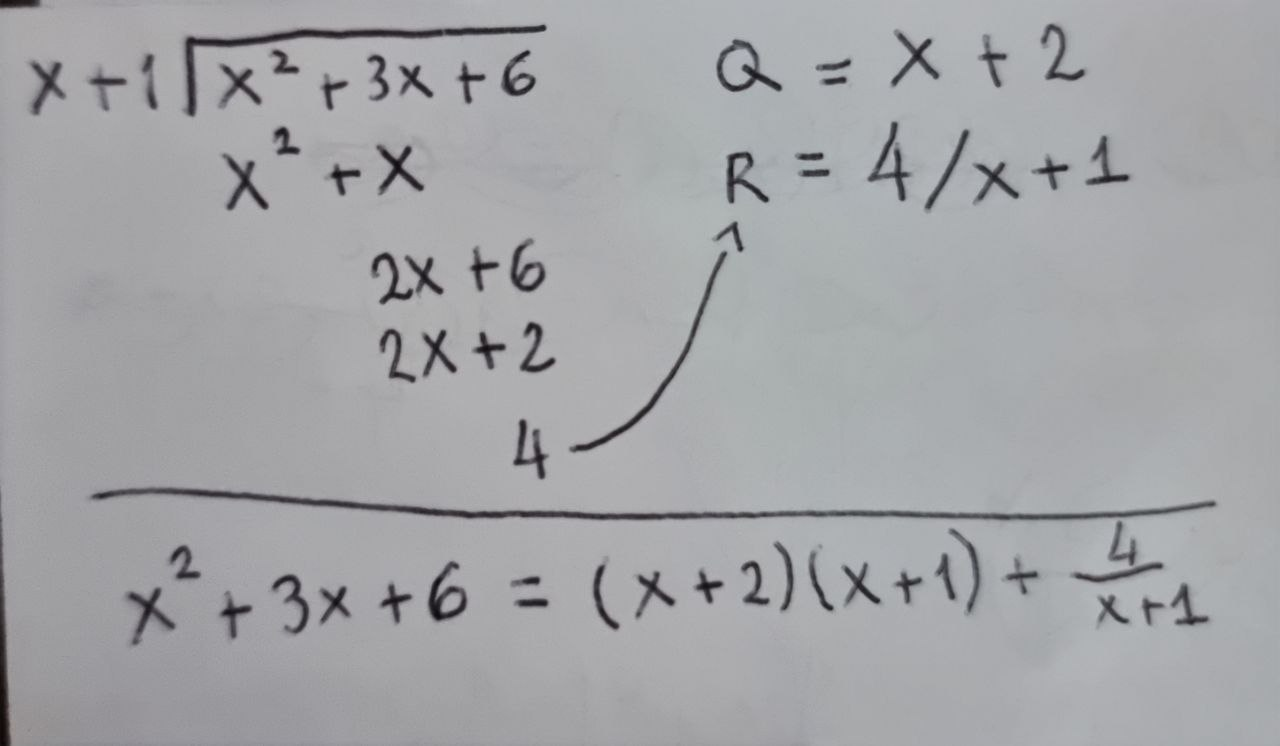 x+1 √x² + 3x + 6
x² + x
2x + 6
2x + 2
4
Q = x + 2
R = 4/x+1
x² + 3x + 6 = (x+2)(x+1) + 4/x+1